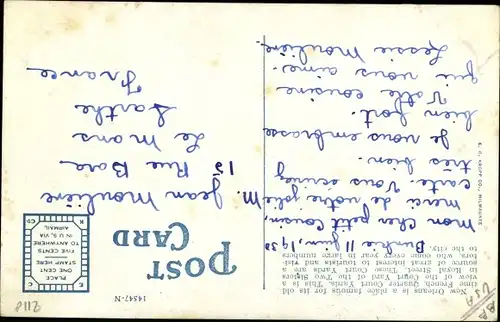 New Orleans is a place famed for its old
time, French Quarter Court Yards. This is a
view of the Court Yard of the Two Sisters
in Royal Street. These Court Yards are a
source of great interest to tourists and visi-
tors who come every year in large numbers
to the city.
Bunkie 11 Juin, 1930
Mon cher petit Cousin,
merci de votre jolie
carte. Vous ecrivez
très bien.
Je vous embrasse
bien fort.
Votre cousine
qui vous aime.
Lessie Moulière.
POST
CARD
PLACE
ONE CENT
STAMP HERE
FIVE CENTS
TO ANYWHERE
IN U.S. VIA
AIRMAIL
E
C
K
CO
14547-N
M. Jean Moulière
15 Rue Bara
Le Mans
Sarthe
France
E. C. KROPP CO., MILWAUKEE
USA